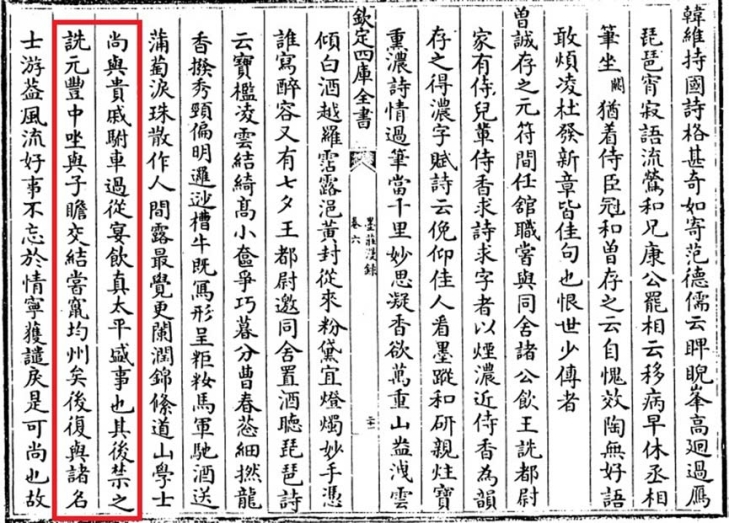 韓維持國詩格甚奇如寄范德儒云睥睨峯高廻過鴈
琵琶宵寂語流鶯和兄康公罷相云移病早休丞相
筆坐闕猶着侍臣冠和曽存之云自愧效陶無好語
敢煩凌杜發新章皆佳句也恨世少傳者
曽誠存之元符間任舘職嘗與同舍諸公飲王詵都尉
家有侍兒軰侍香求詩求字者以煙濃近侍香為韻
存之得濃字賦詩云俛仰佳人看墨蹤和研親炷寶
熏濃詩情過筆當千里妙思凝香欲萬重山盎浅雲
欽定四庫全書
墨莊漫録
卷六
傾白酒越羅霑露浥黄封從來粉黛宜燈燭妙手憑
誰寫醉容又有七夕王都尉邀同舍置酒聴琵琶詩
云寶檻凌雲結綺高小奩爭巧暮分曹春葱細撚龍
香撥秀頸偏明邏逤槽牛既寫形呈粔籹馬軍馳酒送
蒲萄淚珠散作人間露最覺更闌潤錦絛道山學士
尚與貴戚駙車過從宴飲真太平盛事也其後禁之
詵元豐中坐與子瞻交結嘗竄均州矣後復與諸名
士游葢風流好事不忘於情寧獲譴戾是可尚也故